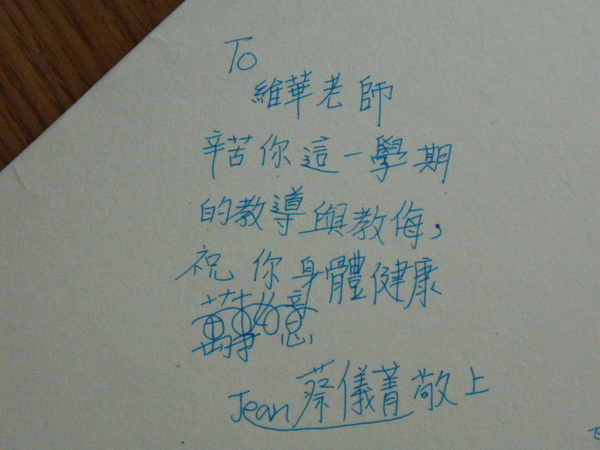 To
維華老師
辛苦你這一學期
的教導與教侮,
祝你身體健康
萬事如意
Jean 蔡儀菁敬上